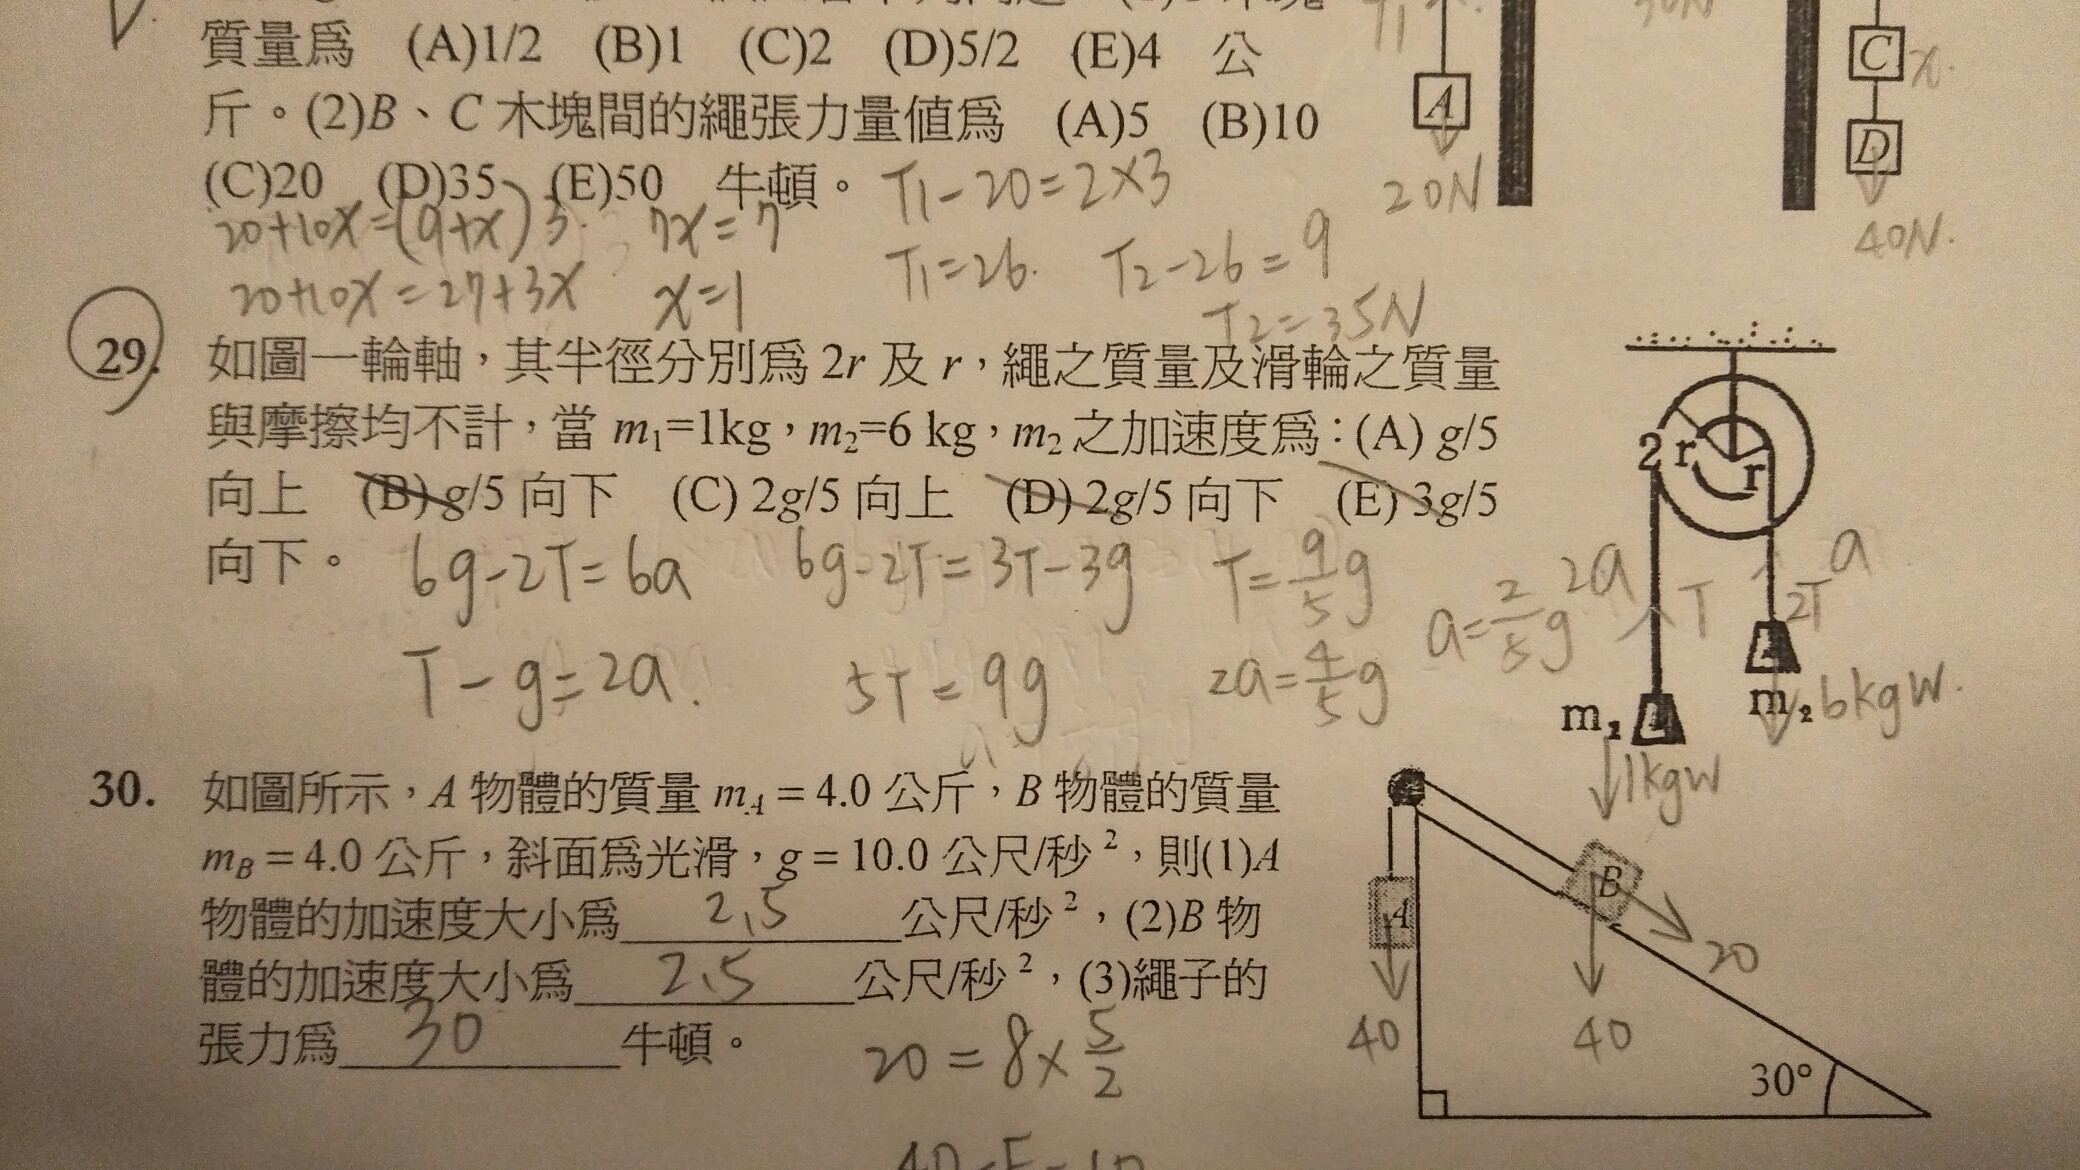 質量爲 (A)1/2 (B)1 (C)2 (D)5/2 (E)4 公
斤。(2)B、C 木塊間的繩張力量值爲 (A)5 (B)10
(C)20 (D)35 (E)50 牛頓。
T1-20=2×3
20+10x=(9+x)3
7x=7
T1=26.
T2-26=9
20+10x=27+3x
x=1
T2=35N
A
20N
C
x.
D
40N.
29. 如圖一輪軸,其半徑分別爲 2r 及 r,繩之質量及滑輪之質量
與摩擦均不計,當 m₁=1kg,m₂=6 kg,m₂之加速度爲:(A) g/5
向上 (B) g/5 向下 (C) 2g/5 向上 (D) 2g/5 向下 (E) 3g/5
向下。
6g-2T=6a
6g-2T=3T-3g
T=9/5g
a=2/5g
T-g=2a.
5T=9g
2a=4/5g
2r
r
2a
T
2T
a
m₁
m₂
6kgw.
1kgw
30. 如圖所示,A 物體的質量 mA = 4.0 公斤,B 物體的質量
mB = 4.0 公斤,斜面爲光滑,g = 10.0 公尺/秒²,則(1)A
物體的加速度大小爲 2.5 公尺/秒²,(2)B 物
體的加速度大小爲 2.5 公尺/秒²,(3)繩子的
張力爲 30 牛頓。
20=8×5/2
A
B
20
40
40
30°